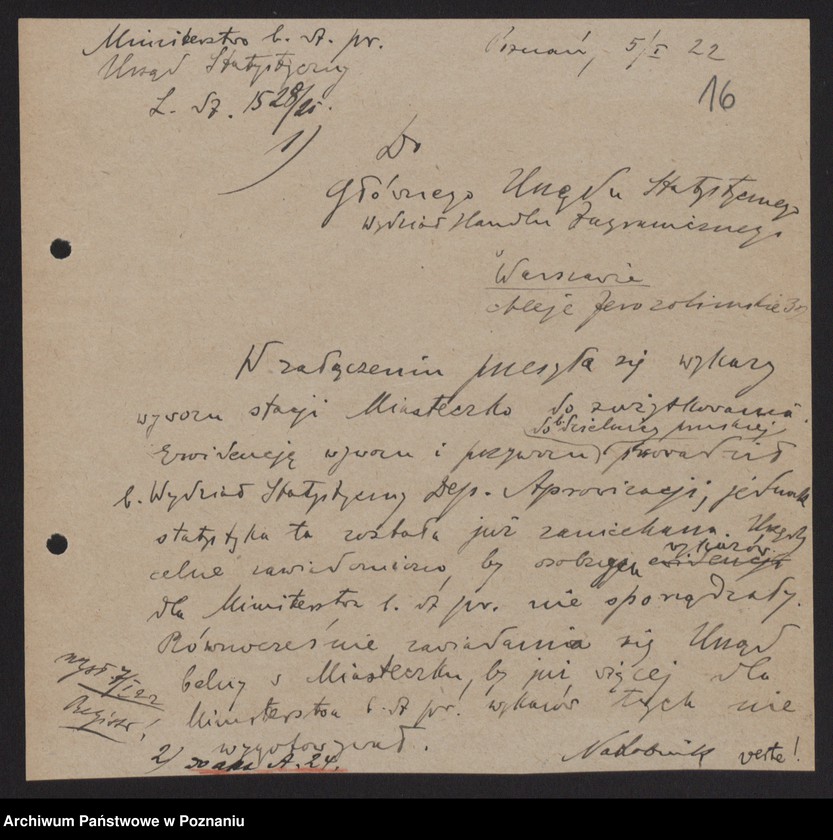 Ministerstwo b. dz. pr.
Urząd Statystyczny
L. dz. 1528/21.
Poznań, 5/I 22
16
1)
Do
Głównego Urzędu Statystycznego
Wydział Handlu Zagranicznego
w Warszawie
Aleje Jerozolimskie 32
W załączeniu przesyła się wykazy
wywozu stacji Miasteczko do zużytkowania.
do b. dzielnicy pruskiej,
Ewidencję wywozu i przywozu prowadził
b. Wydział Statystyczny Dep. Aprowizacji, jednak
statystyka ta została już zaniechana. Urzędy
wykazów
celne zawiadomiono, by osobnych ewidencji
dla Ministerstwa b. dz. pr. nie sporządzały.
Równocześnie zawiadamia się Urząd
Celny w Miasteczku, by już więcej dla
Ministerstwa b. dz. pr. wykazów tych nie
wygotowywał.
wysł. 7/I 22
2) do akt A. 24.
verte!
Archiwum Państwowe w Poznaniu